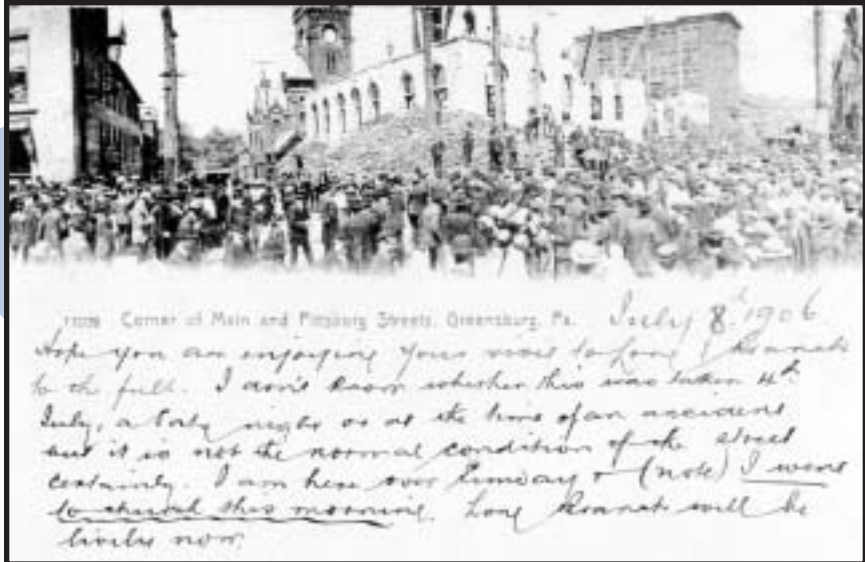 Corner of Main and Pittsburg Streets, Greensburg, Pa. July 8th 1906
Hope you are enjoying your visit to Long Branch
to the full. I don't know whether this was taken 4th
July, a Party night or at the time of an accident
but it is not the normal condition of the street
certainly. I am here over Sunday & (note) I went
to church this morning. Long Branch will be
livelier now.